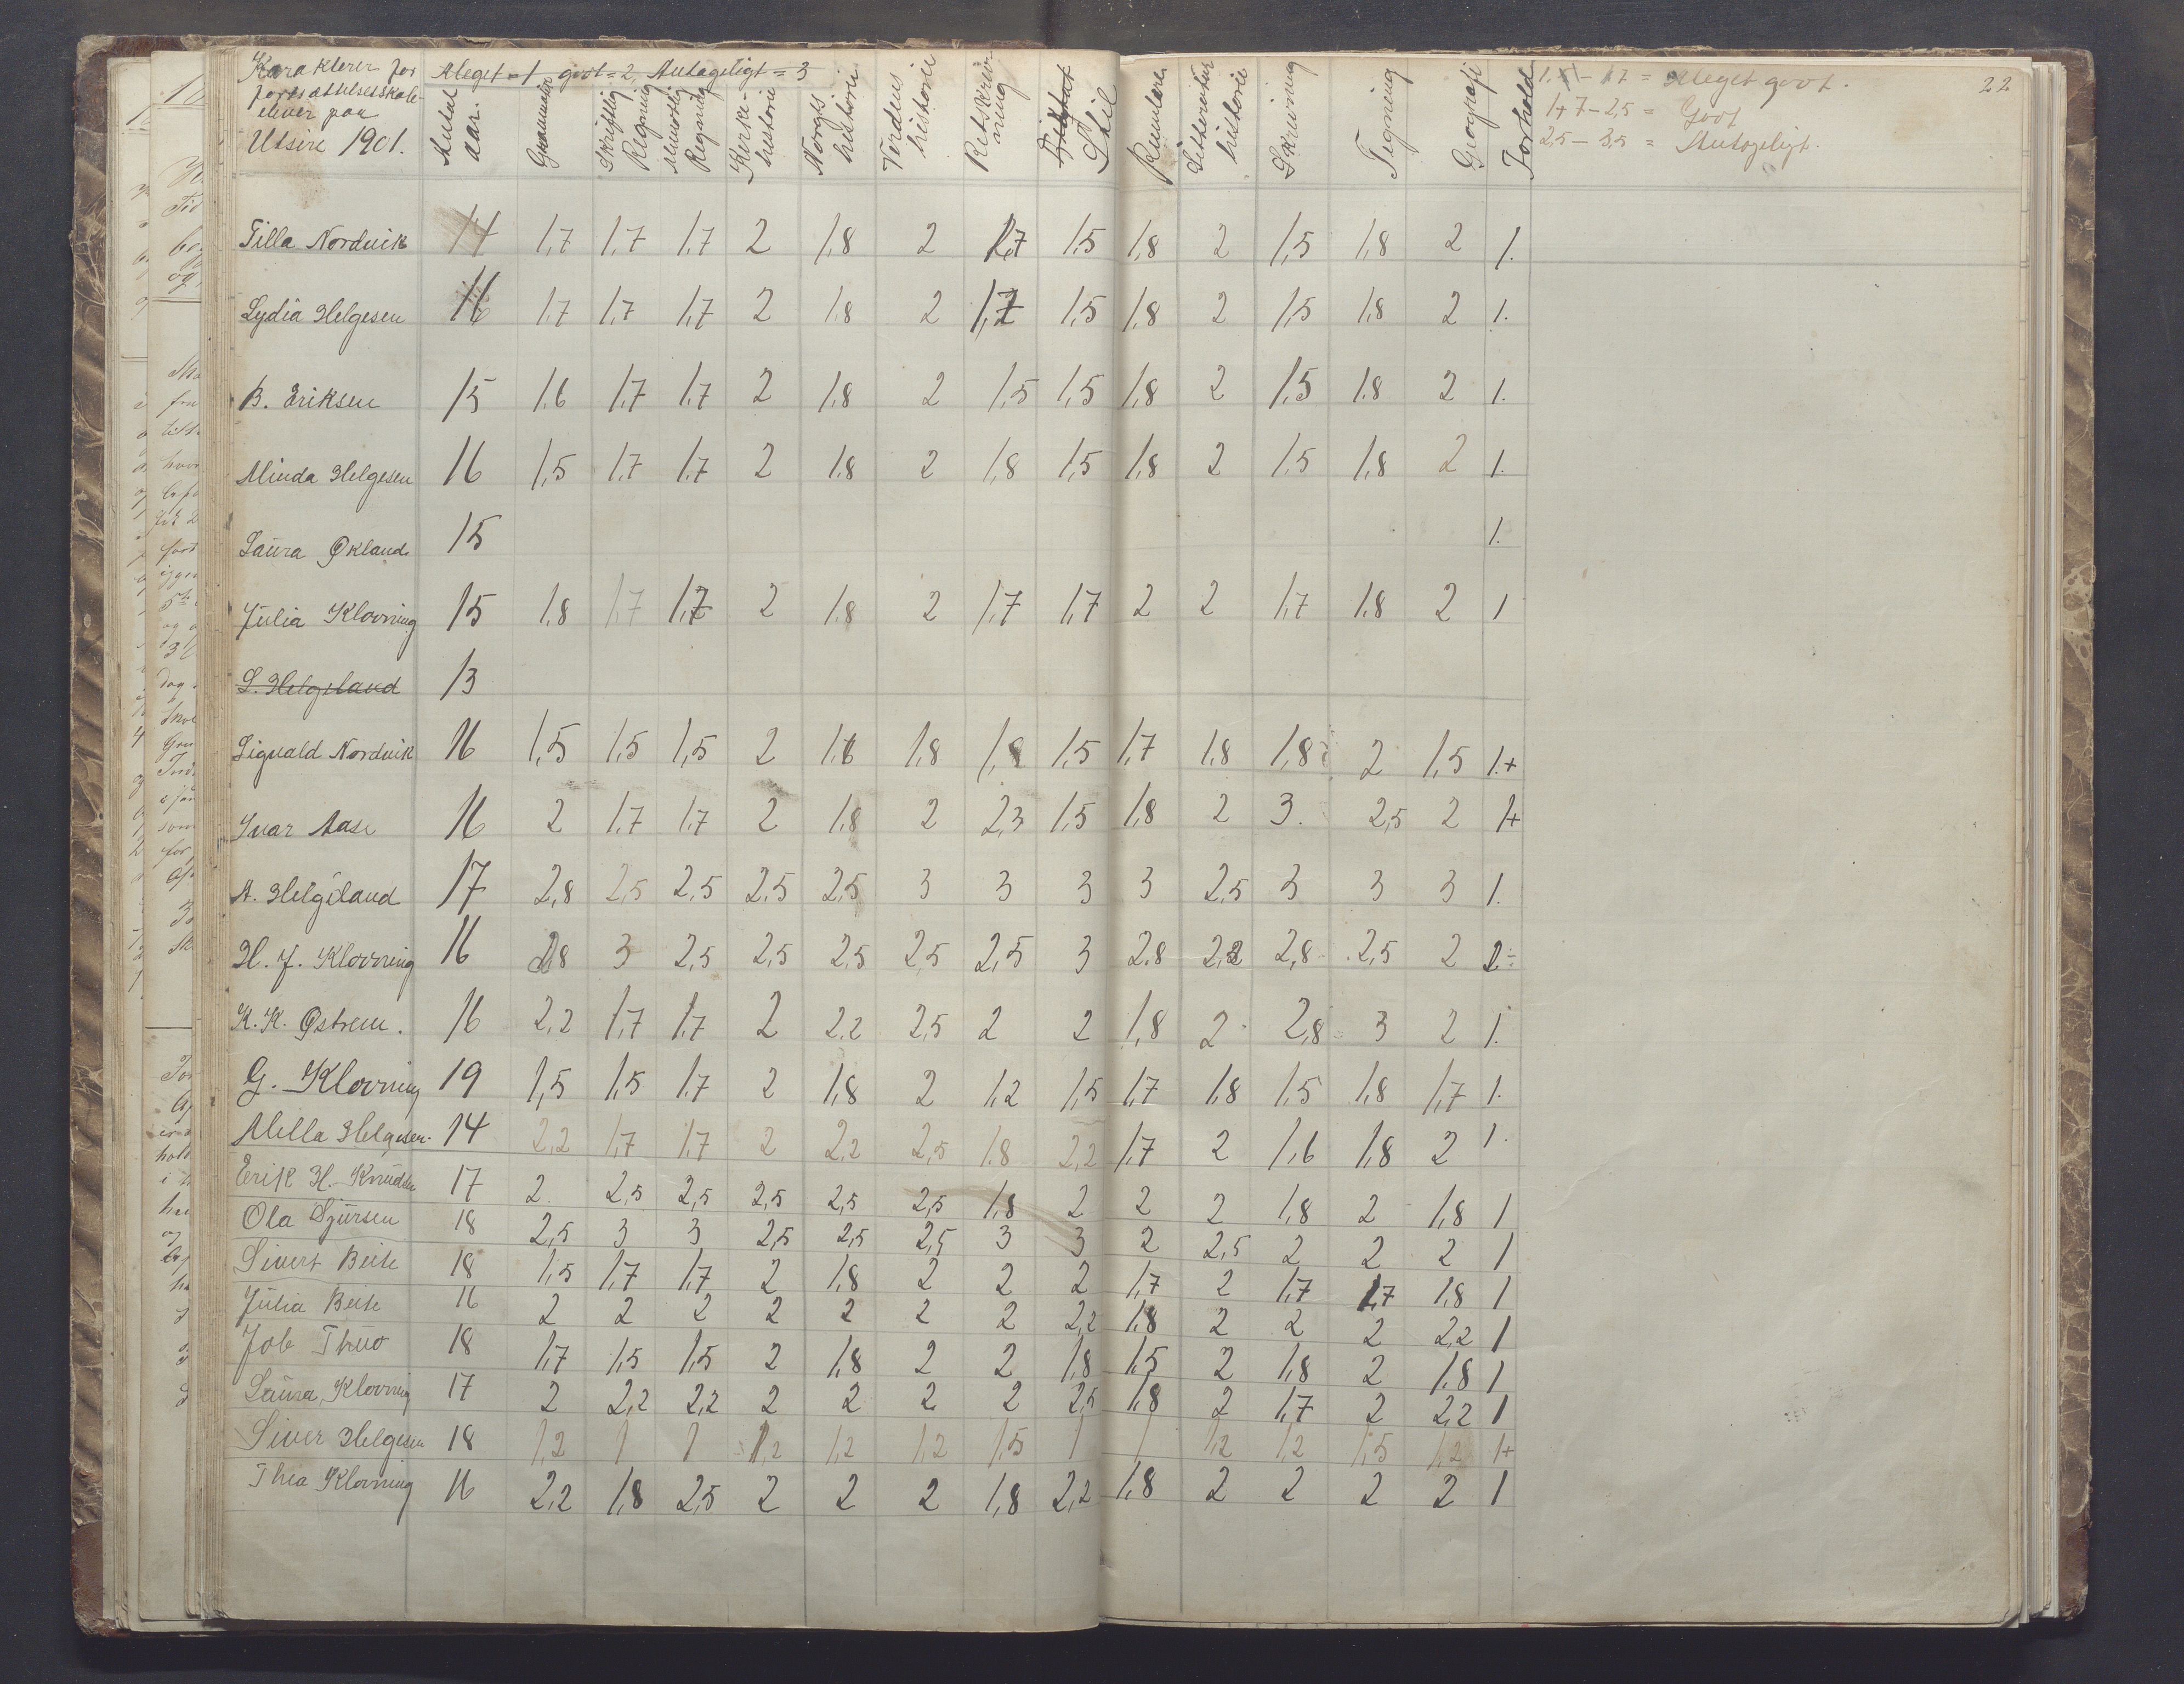 Karakterer for
fortsættelsesskole-
elever paa
Utsire 1901.
Meget = 1 godt = 2, Antageligt = 3
Antal aar.
Grammatik
Skriftlig Regning
Mundtlig Regning
Kirke-historie
Norges historie
Verdens historie
Retskriv-ning
Diktat Stil
Literatur historie
Skrivning
Tegning
Geografi
Forhold
1,1 - 1,7 = Meget godt.
1,7 - 2,5 = Godt
2,5 - 3,5 = Antageligt.
22
Tilla Nordvik 14 1,7 1,7 1,7 2 1,8 2 1,7 1,5 1,8 2 1,5 1,8 2 1.
Lydia Helgesen 16 1,7 1,7 1,7 2 1,8 2 1,7 1,5 1,8 2 1,5 1,8 2 1.
B. Eriksen 15 1,6 1,7 1,7 2 1,8 2 1,5 1,5 1,8 2 1,5 1,8 2 1.
Minda Helgesen 16 1,5 1,7 1,7 2 1,8 2 1,8 1,5 1,8 2 1,5 1,8 2 1.
Laura Økland 15 1.
Julia Klovning 15 1,8 1,7 1,7 2 1,8 2 1,7 1,7 2 2 1,7 1,8 2 1
S. Helgeland 13
Sigvald Nordvik 16 1,5 1,5 1,5 2 1,6 1,8 1,8 1,5 1,7 1,8 1,8 2 1,5 1.+
Ivar Aase 16 2 1,7 1,7 2 1,8 2 2,3 1,5 1,8 2 3. 2,5 2 1+
A. Helgeland 17 2,8 2,5 2,5 2,5 2,5 3 3 3 3 2,5 3 3 3 1.
H. J. Klovning 16 2,8 3 2,5 2,5 2,5 2,5 2,5 3 2,8 2,2 2,8 2,5 2 2÷
K. K. Østrem. 16 2,2 1,7 1,7 2 2,2 2,5 2 2 1,8 2 2,8 3 2 1.
G. Klovning 19 1,5 1,5 1,7 2 1,8 2 1,2 1,5 1,7 1,8 1,5 1,8 1,7 1.
Milla Helgesen. 14 2,2 1,7 1,7 2 2,2 2,5 1,8 2,2 1,7 2 1,6 1,8 2 1.
Erik H. Knudsen 17 2. 2,5 2,5 2,5 2,5 2,5 1,8 2 2 2 1,8 2 1,8 1
Ola Sjursen 18 2,5 3 3 2,5 2,5 2,5 3 3 2 2,5 2 2 2 1
Sivert Beite 18 1,5 1,7 1,7 2 1,8 2 2 2 1,7 2 1,7 1,7 1,8 1
Julia Beite 16 2 2 2 2 2 2 2 2,2 1,8 2 2 2 2,2 1
Job Thuo 18 1,7 1,5 1,5 2 1,8 2 2 1,8 1,5 2 1,8 2 1,8 1
Laura Klovning 17 2 2,2 2,2 2 2 2 2 2,5 1,8 2 1,7 2 2,2 1
Siver Helgesen 18 1,2 1 1 1,2 1,2 1,2 1,5 1 1 1,2 1,2 1,5 1,2 1+
Thea Klovning 16 2,2 1,8 2,5 2 2 2 1,8 2,2 1,8 2 2 2 2 1